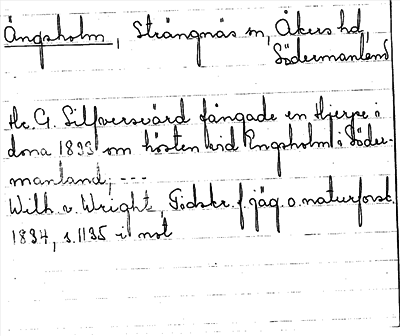 Ängsholm, Strängnäs m, Åkers hd,
Södermanland
Hr. G. Silfversvärd fångade en Hjerpe i
dona 1833 om hösten vid Engsholm i Söder-
manland, ---
Wilh. v. Wright, Tidskr. f. jäg. o. naturforsk.
1834, s. 1135 i not